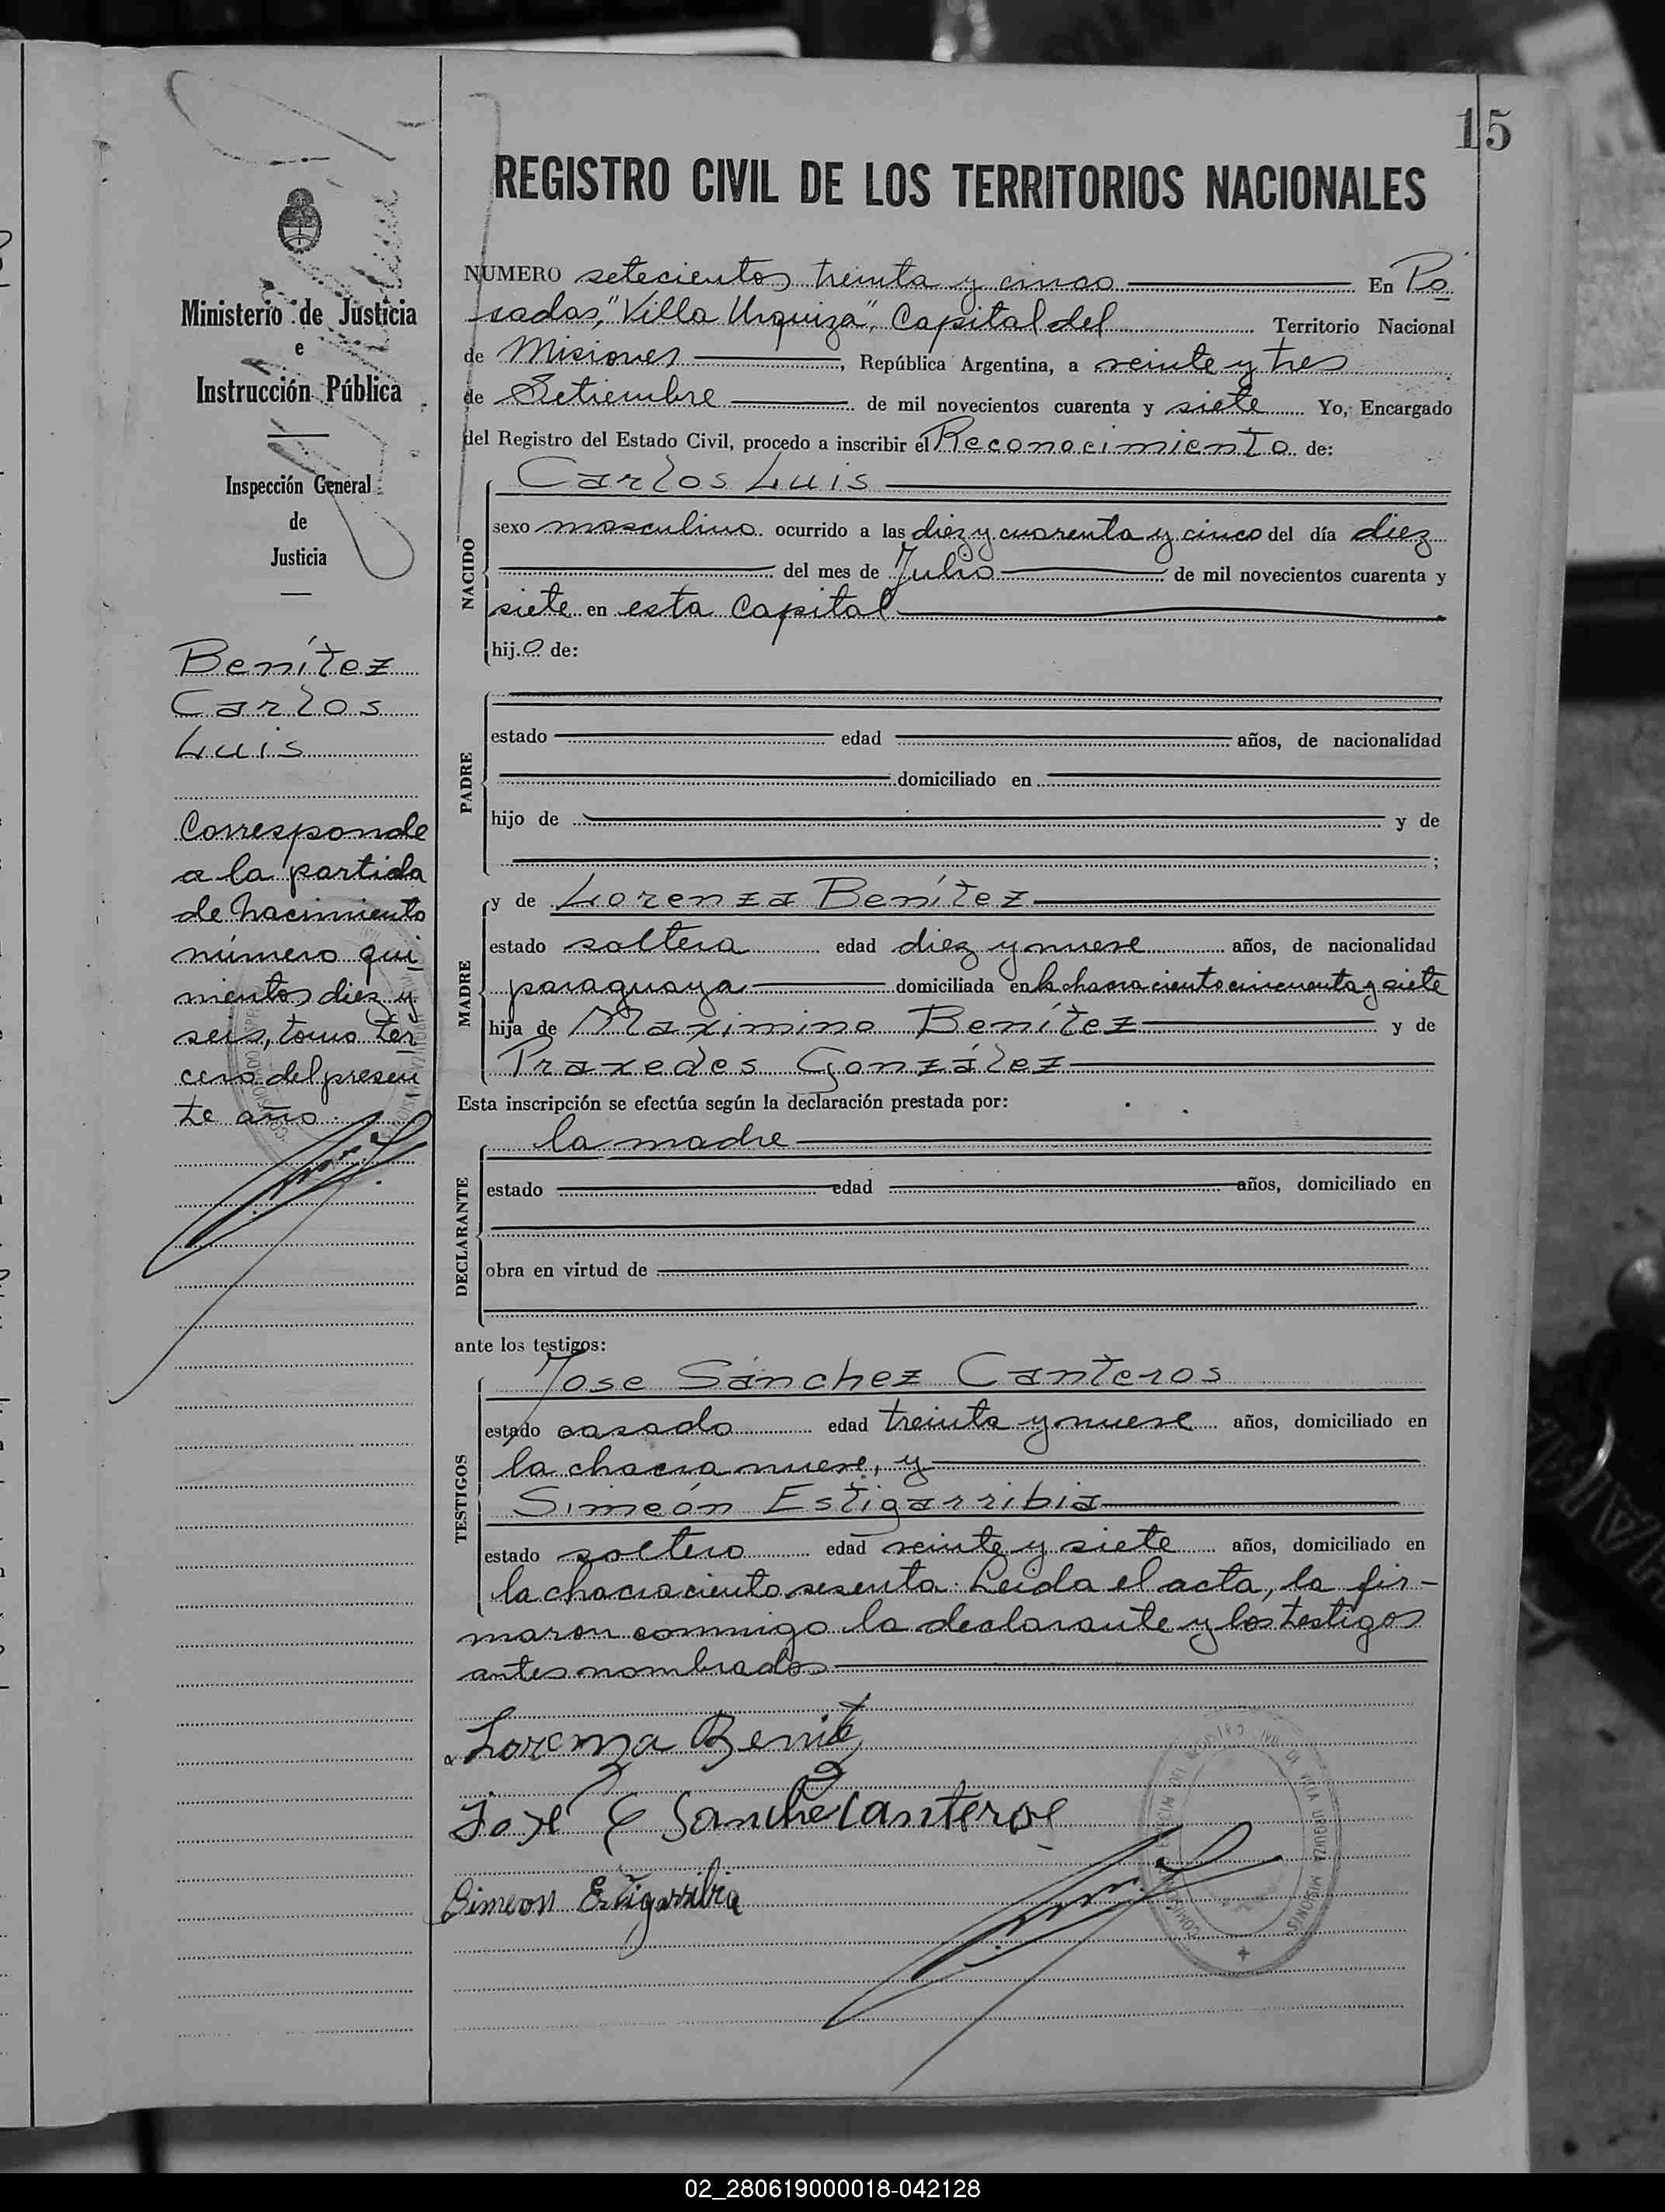 15
REGISTRO CIVIL DE LOS TERRITORIOS NACIONALES
Ministerio de Justicia
e
Instrucción Pública
Inspección General
de
Justicia
Benítez
Carlos
Luis
Corresponde
a la partida
de nacimiento
número qui
nientos diez y
seis, tomo ter
cero del presen
te año.
NUMERO setecientos treinta y cinco En Po
sadas, "Villa Urquiza", Capital del Territorio Nacional
de Misiones, República Argentina, a veinte y tres
de Setiembre de mil novecientos cuarenta y siete Yo, Encargado
del Registro del Estado Civil, procedo a inscribir el Reconocimiento de:
NACIDO
Carlos Luis
sexo masculino ocurrido a las diez y cuarenta y cinco del día diez
del mes de Julio de mil novecientos cuarenta y
siete en esta Capital
hijo de:
PADRE
estado edad años, de nacionalidad
domiciliado en
hijo de y de
;
MADRE
y de Lorenza Benítez
estado soltera edad diez y nueve años, de nacionalidad
paraguaya domiciliada en la chacra ciento cincuenta y siete
hija de Maximino Benítez y de
Praxedes González
Esta inscripción se efectúa según la declaración prestada por:
DECLARANTE
la madre
estado edad años, domiciliado en
obra en virtud de
ante los testigos:
TESTIGOS
Jose Sánchez Canteros
estado casado edad treinta y nueve años, domiciliado en
la chacra nueve, y
Simeón Estigarribia
estado soltero edad veinte y siete años, domiciliado en
la chacra ciento sesenta. Leida el acta, la fir-
maron conmigo la declarante y los testigos
antes nombrados
Lorenza Benitez
Jose Sanche Canteros
Simeon Estigarribia
VILLA URGUIZA MISIONES
02_280619000018-042128